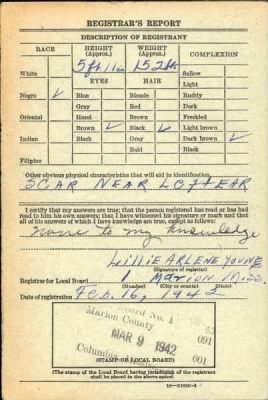 REGISTRAR'S REPORT
DESCRIPTION OF REGISTRANT
RACE HEIGHT (Approx.) WEIGHT (Approx.) COMPLEXION
White 5 ft 11 in 152 lbs. Sallow
EYES HAIR Light
Negro ✓ Blue Blonde Ruddy
Gray Red Dark
Oriental Hazel Brown Freckled
Brown ✓ Black ✓ Light brown
Indian Black Gray Dark brown ✓
Bald Black
Filipino
Other obvious physical characteristics that will aid in identification
SCAR NEAR LEFT EAR
I certify that my answers are true; that the person registered has read or has had
read to him his own answers; that I have witnessed his signature or mark and that
all of his answers of which I have knowledge are true, except as follows:
None to my knowledge
Lillie Arlene Young
(Signature of registrar)
Registrar for Local Board 1 Marion Miss.
(Number) (City or county) (State)
Date of registration Feb. 16, 1942
Board No. 1
Marion County 091
MAR 9 1942
001
Columbia
(STAMP OF LOCAL BOARD)
(The stamp of the Local Board having jurisdiction of the registrant
shall be placed in the above space)